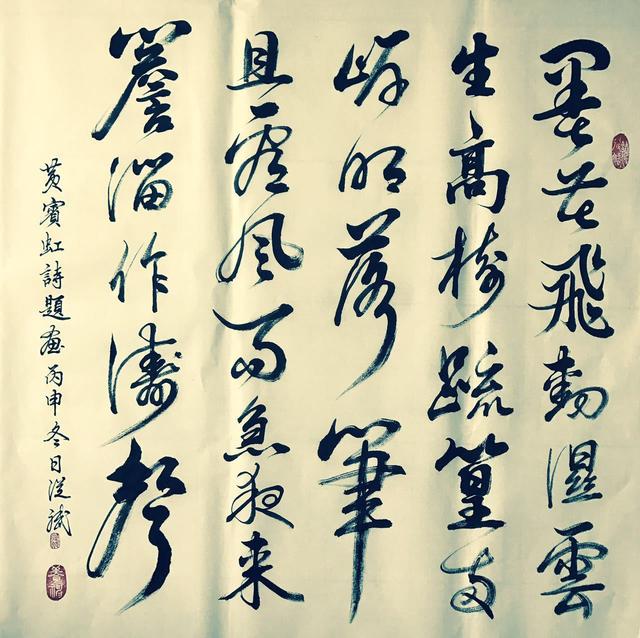 墨花飛動濕雲
生高樹疏篁兩
岸明落筆
且風雨急夜来
簷溜作濤聲
黄賓虹詩題畫丙申冬日從斌